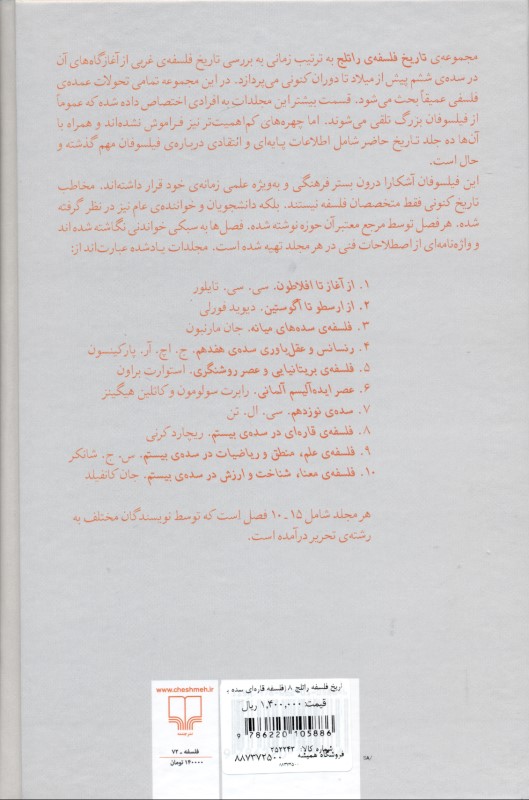 مجموعه‌ی تاریخ فلسفه‌ی راتلج به ترتیب زمانی به بررسی تاریخ فلسفه‌ی غربی از آغازگاه‌های آن
در سده‌ی ششم پیش از میلاد تا دوران کنونی می‌پردازد. در این مجموعه تمامی تحولات عمده‌ی
فلسفی عمیقاً بحث می‌شود. قسمت بیشتر این مجلدات به افرادی اختصاص داده شده که عموماً
از فیلسوفان بزرگ تلقی می‌شوند. اما چهره‌های کم‌اهمیت‌تر نیز فراموش نشده‌اند و همراه با
آن‌ها ده جلد تاریخ حاضر شامل اطلاعات پایه‌ای و انتقادی درباره‌ی فیلسوفان مهم گذشته و
حال است.
این فیلسوفان آشکارا درون بستر فرهنگی و به‌ویژه علمی زمانه‌ی خود قرار داشته‌اند. مخاطب
تاریخ کنونی فقط متخصصان فلسفه نیستند. بلکه دانشجویان و خواننده‌ی عام نیز در نظر گرفته
شده. هر فصل توسط مرجع معتبر آن حوزه نوشته شده. فصل‌ها به سبکی خواندنی نگاشته شده اند
و واژه‌نامه‌ای از اصطلاحات فنی در هر مجلد تهیه شده است. مجلدات یادشده عبارت‌اند از:
۱. از آغاز تا افلاطون. سی. سی. تایلور
۲. از ارسطو تا آگوستین. دیوید فورلی
۳. فلسفه‌ی سده‌های میانه. جان مارنبون
۴. رنسانس و عقل‌باوری سده‌ی هفدهم. ج. اچ. آر. پارکینسون
۵. فلسفه‌ی بریتانیایی و عصر روشنگری. استوارت براون
۶. عصر ایده‌آلیسم آلمانی. رابرت سولومون و کاتلین هیگینز
۷. سده‌ی نوزدهم. سی. ال. تن
۸. فلسفه‌ی قاره‌ای در سده‌ی بیستم. ریچارد کرنی
۹. فلسفه‌ی علم، منطق و ریاضیات در سده‌ی بیستم. س. ج. شانکر
۱۰. فلسفه‌ی معنا، شناخت و ارزش در سده‌ی بیستم. جان کانفیلد
هر مجلد شامل ۱۵-۱۰ فصل است که توسط نویسندگان مختلف به
رشته‌ی تحریر درآمده است.
اریخ فلسفه راتلج ۸ (فلسفه قاره‌ای سده ب
قیمت: ۱,۴۰۰,۰۰۰ ریال
9 786220 105886
شماره کالا: ۲۵۲۲۴۲
فروشگاه همیشه ۸۸۷۳۷۲۵۰۰
www.cheshmeh.ir
نشر چشمه
فلسفه - ۷۲
۱۴۰۰۰۰ تومان